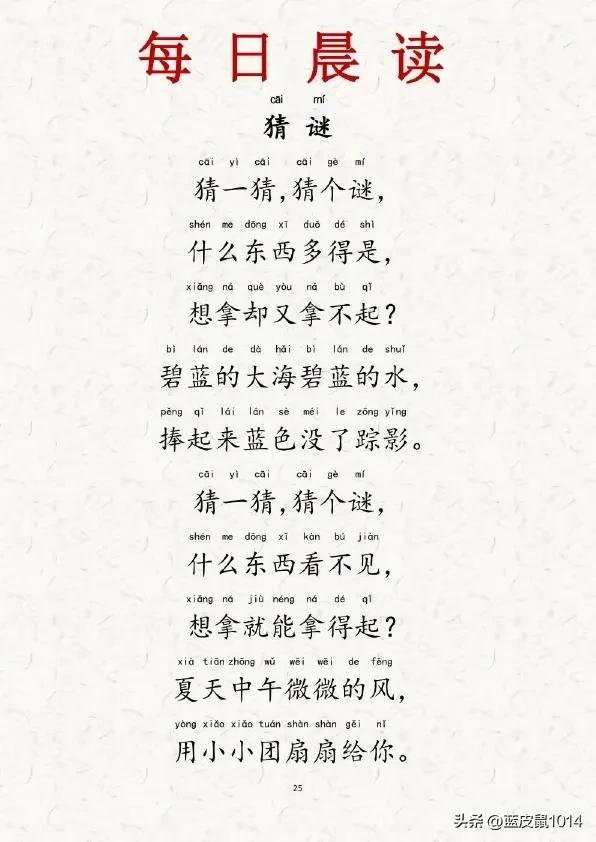 每日晨读
cāi mí
猜谜
cāi yì cāi cāi gè mí
猜一猜,猜个谜,
shén me dōng xī duō dé shì
什么东西多得是,
xiǎng ná què yòu ná bù qǐ
想拿却又拿不起?
bì lán de dà hǎi bì lán de shuǐ
碧蓝的大海碧蓝的水,
pěng qǐ lái lán sè méi le zōng yǐng
捧起来蓝色没了踪影。
cāi yì cāi cāi gè mí
猜一猜,猜个谜,
shén me dōng xī kàn bú jiàn
什么东西看不见,
xiǎng ná jiù néng ná dé qǐ
想拿就能拿得起?
xià tiān zhōng wǔ wēi wēi de fēng
夏天中午微微的风,
yòng xiǎo xiǎo tuán shàn shàn gěi nǐ
用小小团扇扇给你。
25
头条 @蓝皮鼠1014